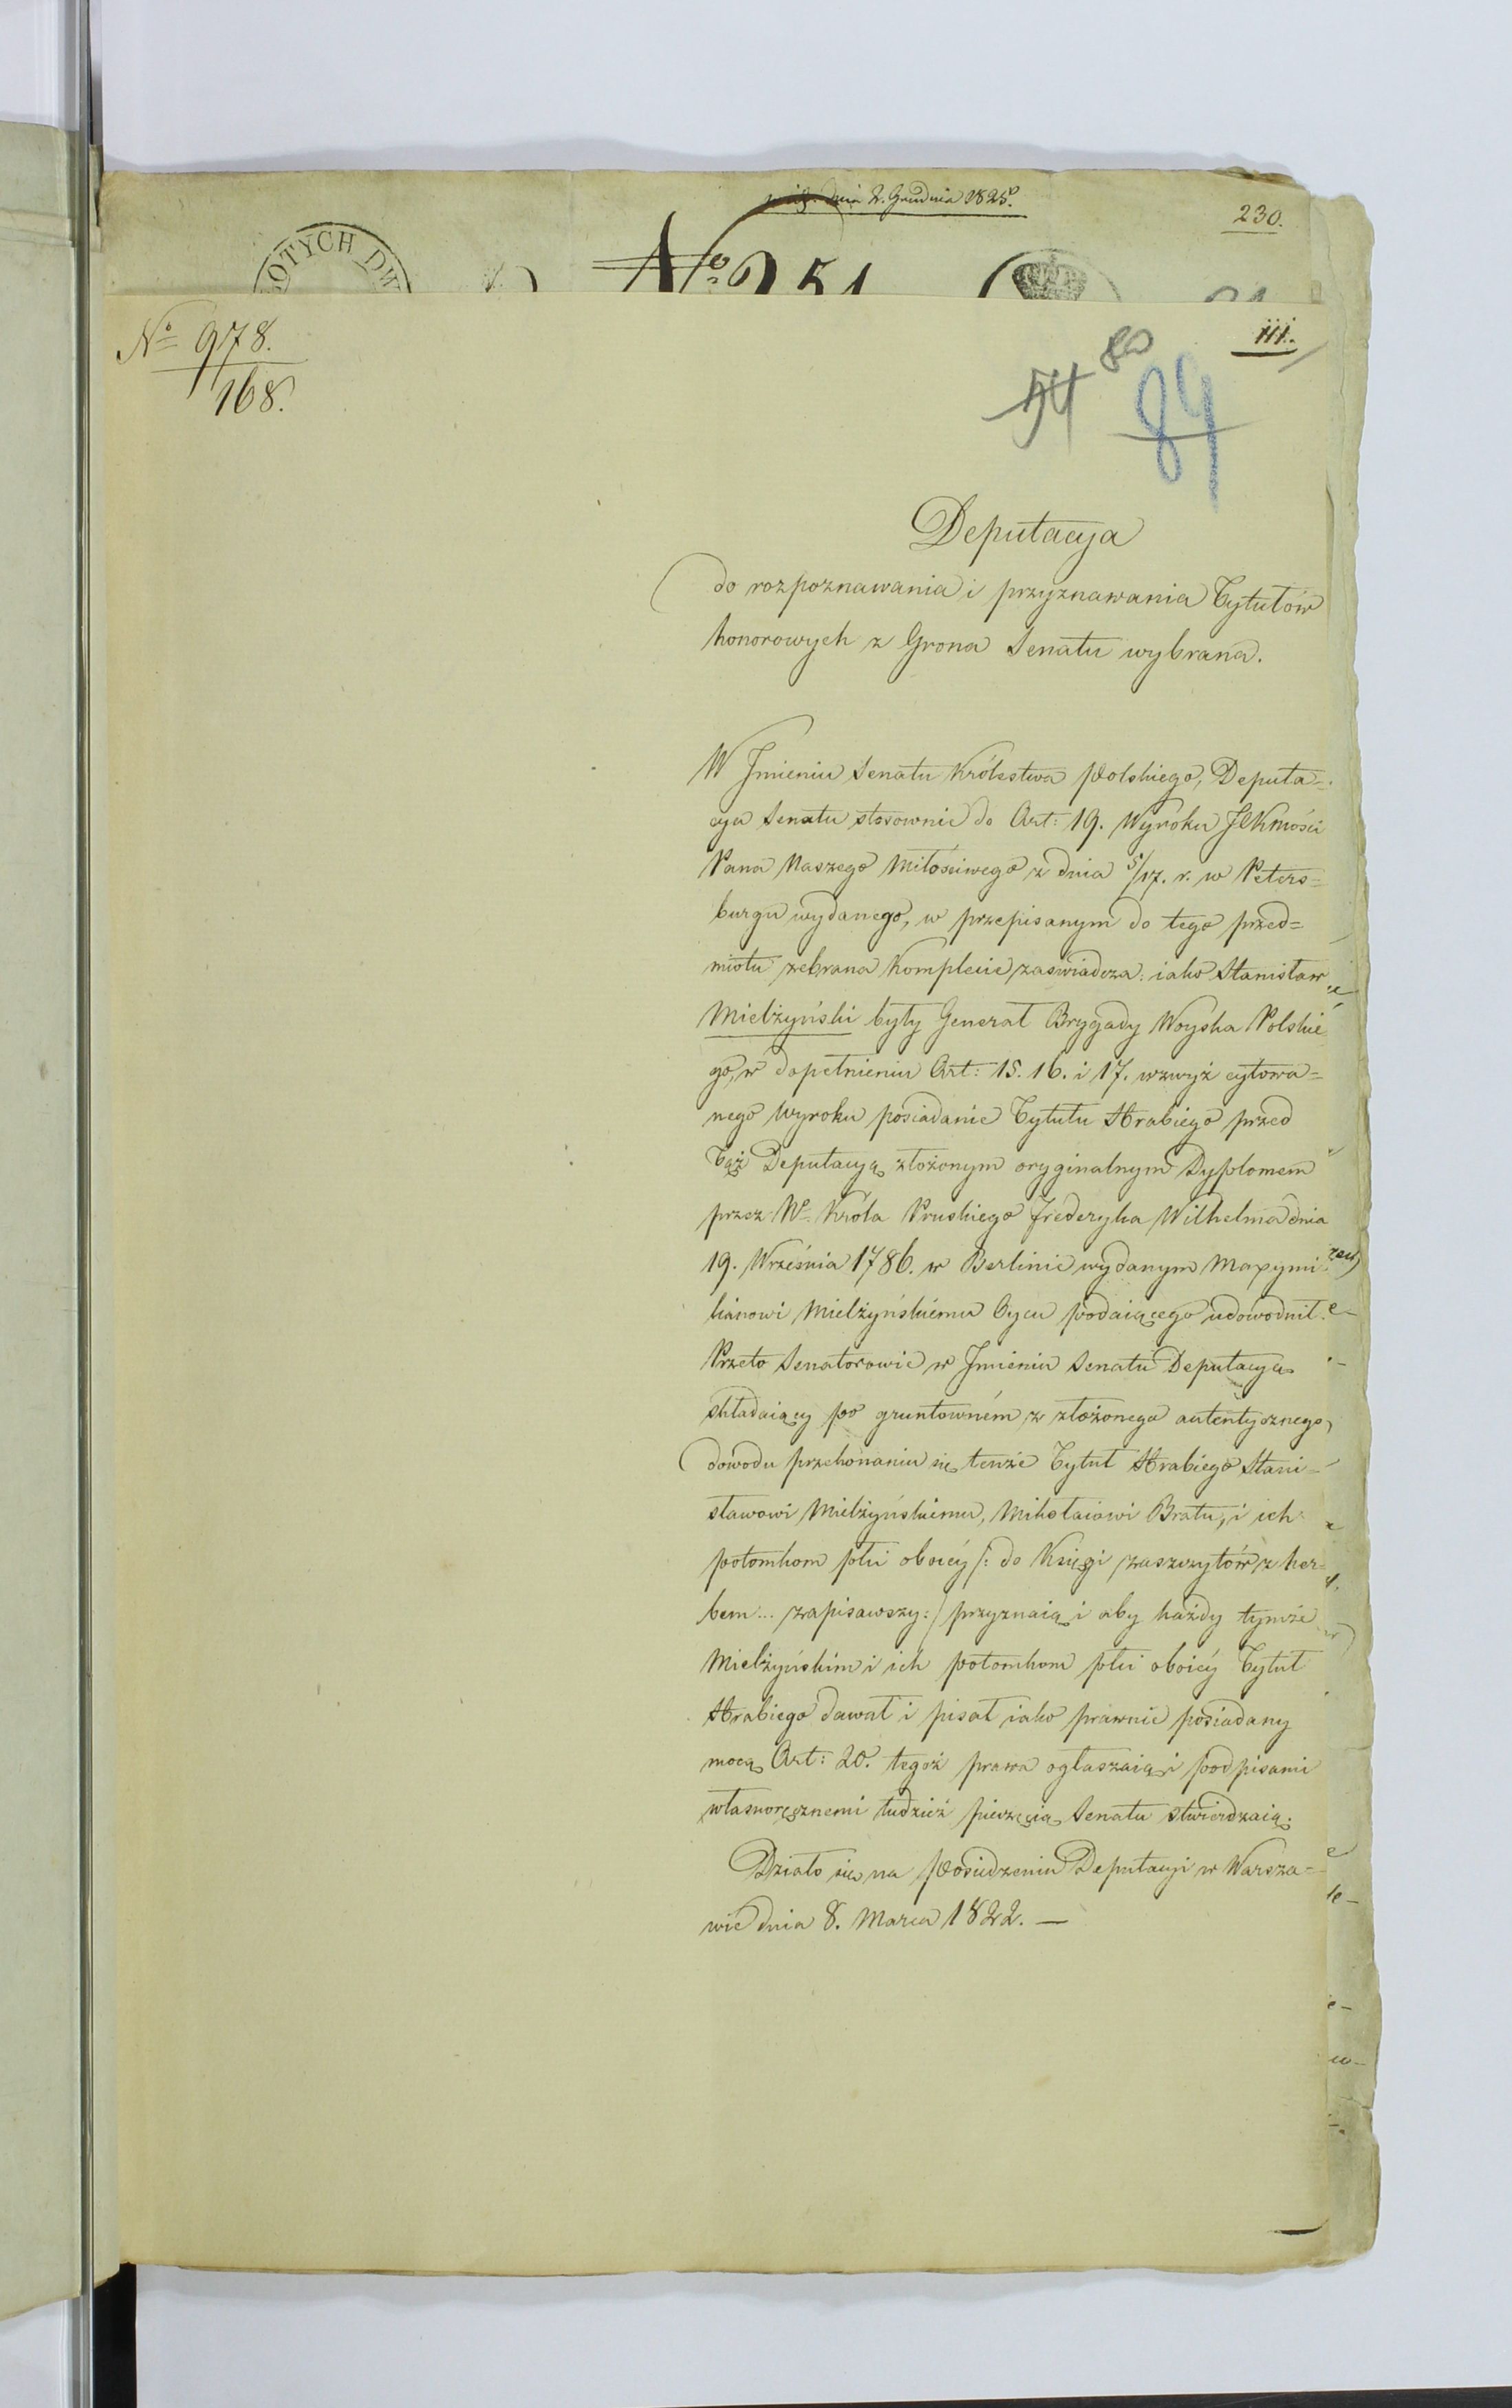 dnia 2. Grudnia 1825.
230.
OTYCH DW
No 251
No 978.
168.
111.
54 80 84
Deputacya
do rozpoznawania i przyznawania Tytułów
honorowych z Grona Senatu wybrana.
W Jmieniu Senatu Królestwa Polskiego, Deputa=
cya Senatu stosownie do Art: 19. Wyroku JCKMości
Pana Naszego Miłościwego z dnia 5/17. r. w Peters=
burgu wydanego, w przepisanym do tego przed=
miotu zebrana Komplecie zaświadcza: iako Stanisław
Mielżyński były Generał Brygady Woyska Polskie
go, w dopełnieniu Art: 15. 16. i 17. wzwyż cytowa=
nego Wyroku posiadanie Tytułu Hrabiego przed
Tąż Deputacyą złożonym oryginalnym Dyplomem
przez Wo Króla Pruskiego Frederyka Wilhelma dnia
19. Września 1786. w Berlinie wydanym Maxymi
lianowi Mielżyńskiemu Oycu podaiącego udowodnił.
Przeto Senatorowie w Jmieniu Senatu Deputacyą
składaiący po gruntowném, z złożonego autentycznego,
dowodu przekonaniu się tenże Tytuł Hrabiego Stani=
sławowi Mielżyńskiemu, Mikołaiowi Bratu, i ich
potomkom płci oboiéy /: do Księgi zaszczytów z her=
bem... zapisawszy :/ przyznaią i aby każdy tymże
Mielżyńskim i ich potomkom płci oboiéy Tytuł
Hrabiego dawał i pisał iako prawnie posiadany
mocą Art: 20. tegoż prawa ogłaszaią i podpisami
własnoręcznemi tudzież pieczęcią Senatu stwierdzaią.
Działo się na Posiedzeniu Deputacyi w Warsza=
wie dnia 8. Marca 1822. —